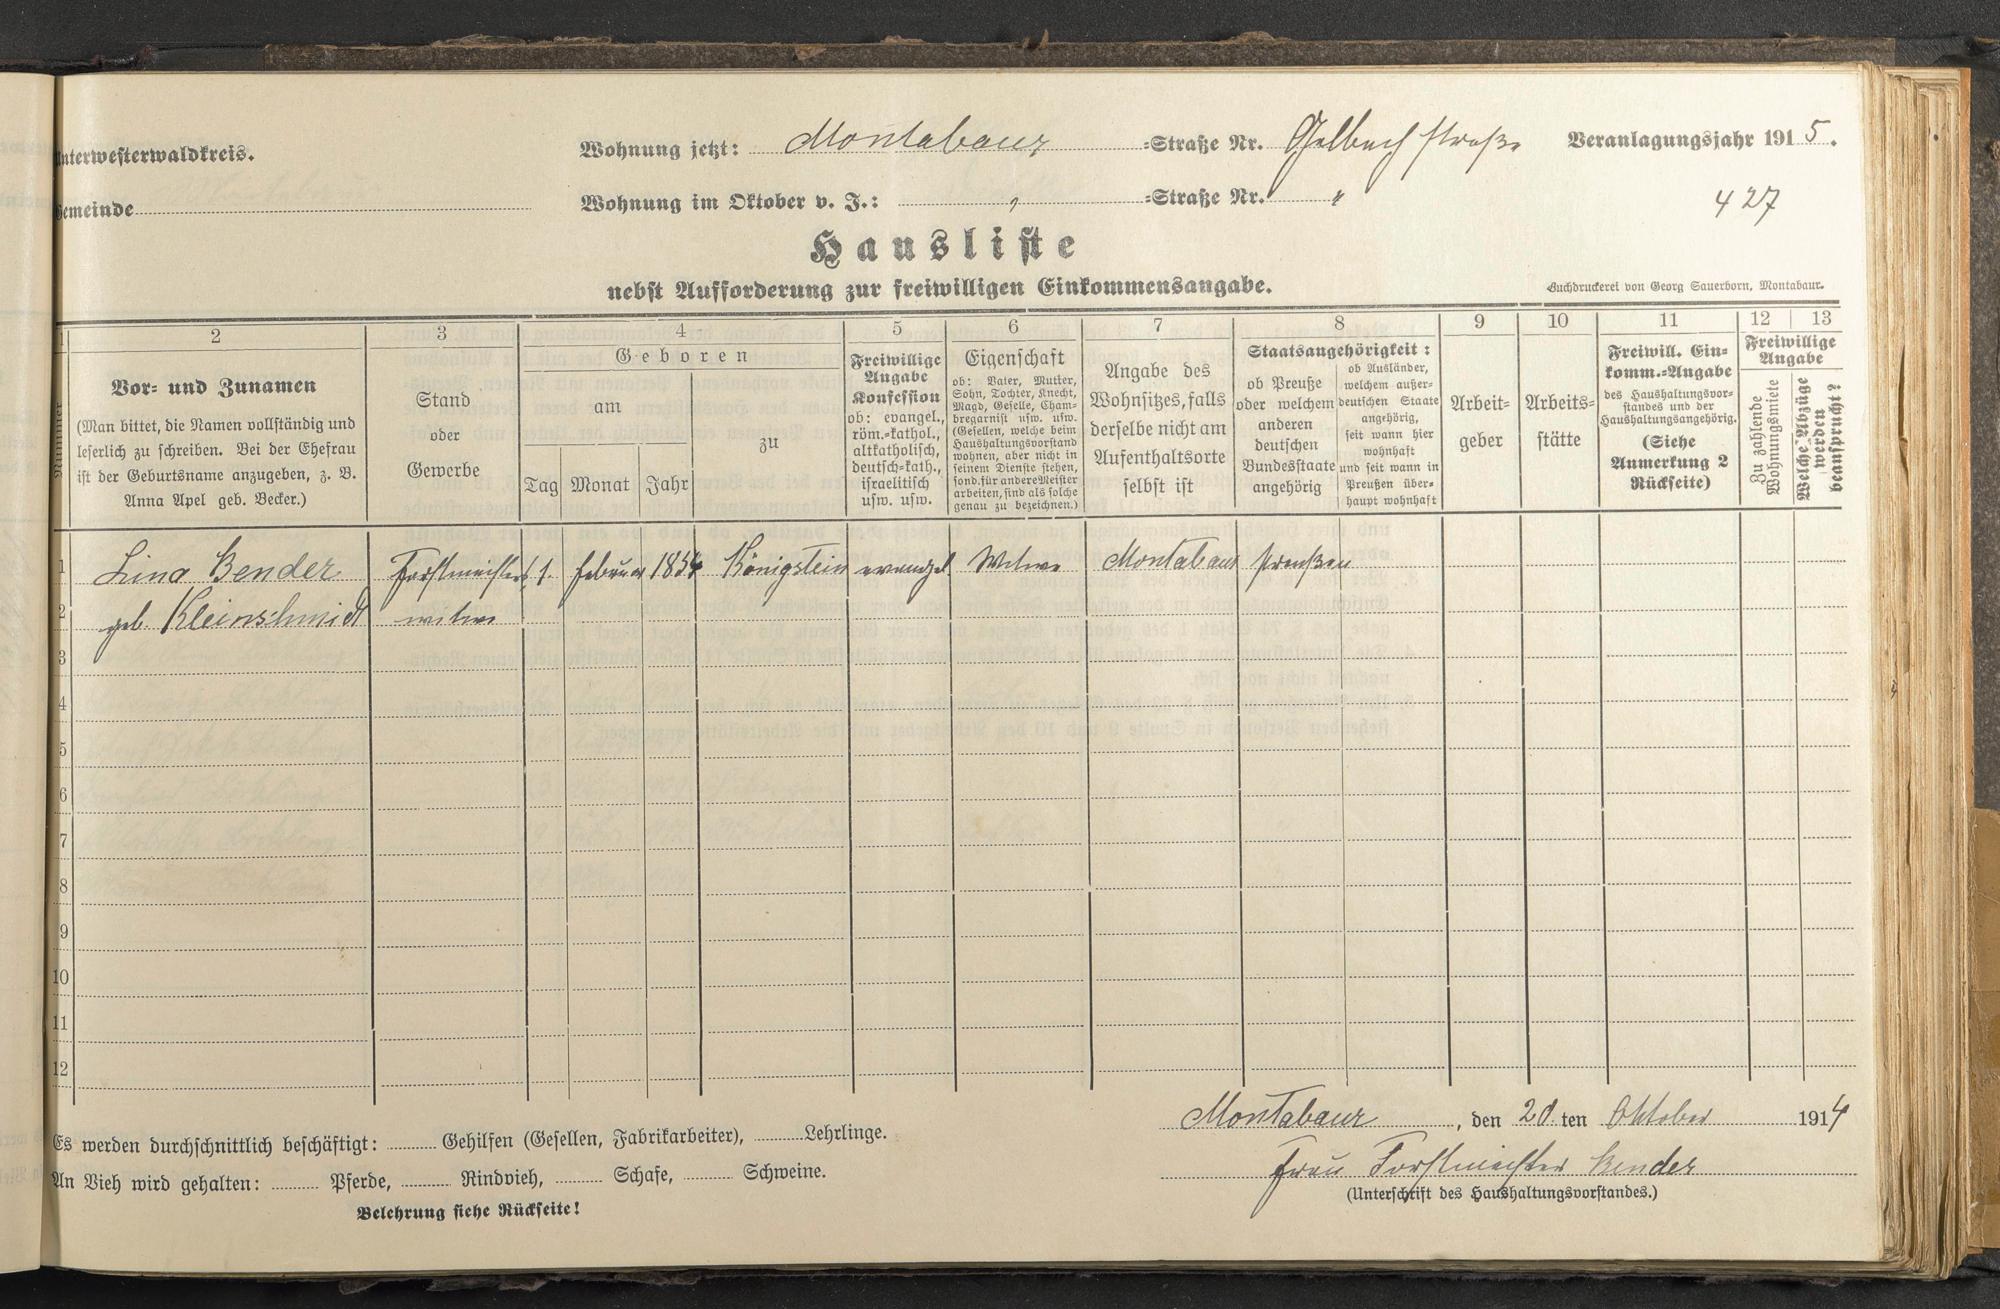 Unterwesterwaldkreis.
Wohnung jetzt: Montabaur =Straße Nr. Gelbachstraße Veranlagungsjahr 1915.
Gemeinde
Wohnung im Oktober v. J.: " =Straße Nr. "
427
Hausliste
nebst Aufforderung zur freiwilligen Einkommensangabe.
Buchdruckerei von Georg Sauerborn, Montabaur.
1 2 3 4 5 6 7 8 9 10 11 12 13
Nummer
Vor- und Zunamen
(Man bittet, die Namen vollständig und
leserlich zu schreiben. Bei der Ehefrau
ist der Geburtsname anzugeben, z. B.
Anna Apel geb. Becker.)
Stand
oder
Gewerbe
Geboren
am
zu
Tag Monat Jahr
Freiwillige
Angabe
Konfession
ob: evangel.,
röm.-kathol.,
altkatholisch,
deutsch-kath.,
israelitisch
usw. usw.
Eigenschaft
ob: Vater, Mutter,
Sohn, Tochter, Knecht,
Magd, Geselle, Cham-
bregarnist usw. usw.
(Gesellen, welche beim
Haushaltungsvorstand
wohnen, aber nicht in
seinem Dienste stehen,
sond. für andere Meister
arbeiten, sind als solche
genau zu bezeichnen.)
Angabe des
Wohnsitzes, falls
derselbe nicht am
Aufenthaltsorte
selbst ist
Staatsangehörigkeit:
ob Preuße
oder welchem
anderen
deutschen
Bundesstaate
angehörig
ob Ausländer,
welchem außer-
deutschen Staate
angehörig,
seit wann hier
wohnhaft
und seit wann in
Preußen über-
haupt wohnhaft
Arbeit-
geber
Arbeits-
stätte
Freiwill. Ein-
komm.-Angabe
des Haushaltungsvor-
standes und der
Haushaltungsangehörig.
(Siehe
Anmerkung 2
Rückseite)
Freiwillige
Angabe
Zu zahlende
Wohnungsmiete
Welche Abzüge
werden
beansprucht?
1 Lina Bender Forstmeisters 1. Februar 1854 Königstein evangel. Witwe Montabaur Preußen
2 geb. Kleinschmidt witwe
3
4
5
6
7
8
9
10
11
12
Montabaur, den 20 ten Oktober 1914
Es werden durchschnittlich beschäftigt: Gehilfen (Gesellen, Fabrikarbeiter), Lehrlinge.
Frau Forstmeister Bender
An Vieh wird gehalten: Pferde, Rindvieh, Schafe, Schweine.
(Unterschrift des Haushaltungsvorstandes.)
Belehrung siehe Rückseite!